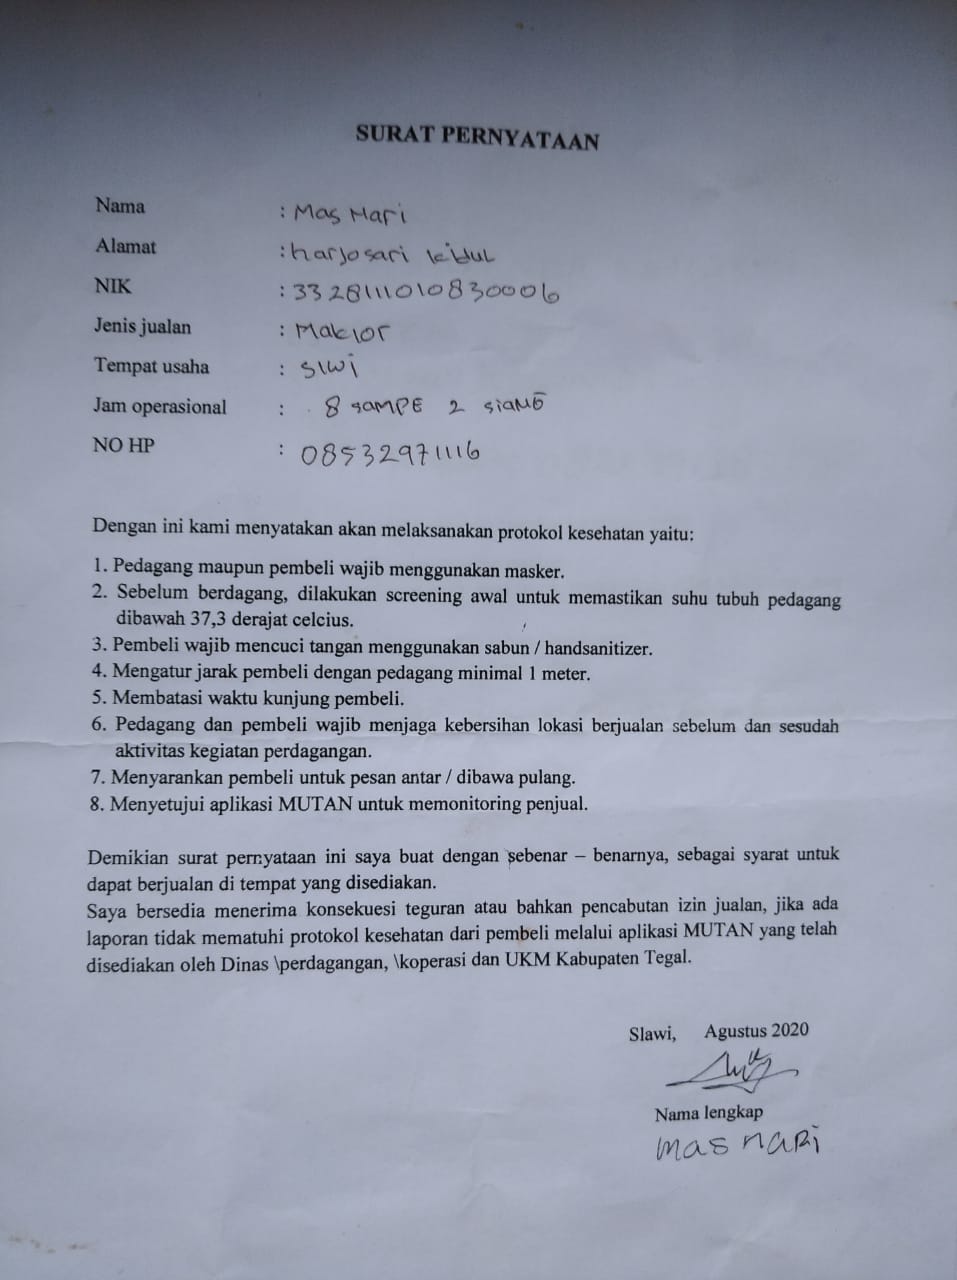 SURAT PERNYATAAN
Nama : Mas Hari
Alamat : harjosari kidul
NIK : 3328111010830006
Jenis jualan : Maklor
Tempat usaha : SlWi
Jam operasional : 8 SAMPE 2 SiaNG
NO HP : 08532971116
Dengan ini kami menyatakan akan melaksanakan protokol kesehatan yaitu:
1. Pedagang maupun pembeli wajib menggunakan masker.
2. Sebelum berdagang, dilakukan screening awal untuk memastikan suhu tubuh pedagang
dibawah 37,3 derajat celcius.
3. Pembeli wajib mencuci tangan menggunakan sabun / handsanitizer.
4. Mengatur jarak pembeli dengan pedagang minimal 1 meter.
5. Membatasi waktu kunjung pembeli.
6. Pedagang dan pembeli wajib menjaga kebersihan lokasi berjualan sebelum dan sesudah
aktivitas kegiatan perdagangan.
7. Menyarankan pembeli untuk pesan antar / dibawa pulang.
8. Menyetujui aplikasi MUTAN untuk memonitoring penjual.
Demikian surat pernyataan ini saya buat dengan sebenar – benarnya, sebagai syarat untuk
dapat berjualan di tempat yang disediakan.
Saya bersedia menerima konsekuesi teguran atau bahkan pencabutan izin jualan, jika ada
laporan tidak mematuhi protokol kesehatan dari pembeli melalui aplikasi MUTAN yang telah
disediakan oleh Dinas \perdagangan, \koperasi dan UKM Kabupaten Tegal.
Slawi, Agustus 2020
Nama lengkap
mas HARi